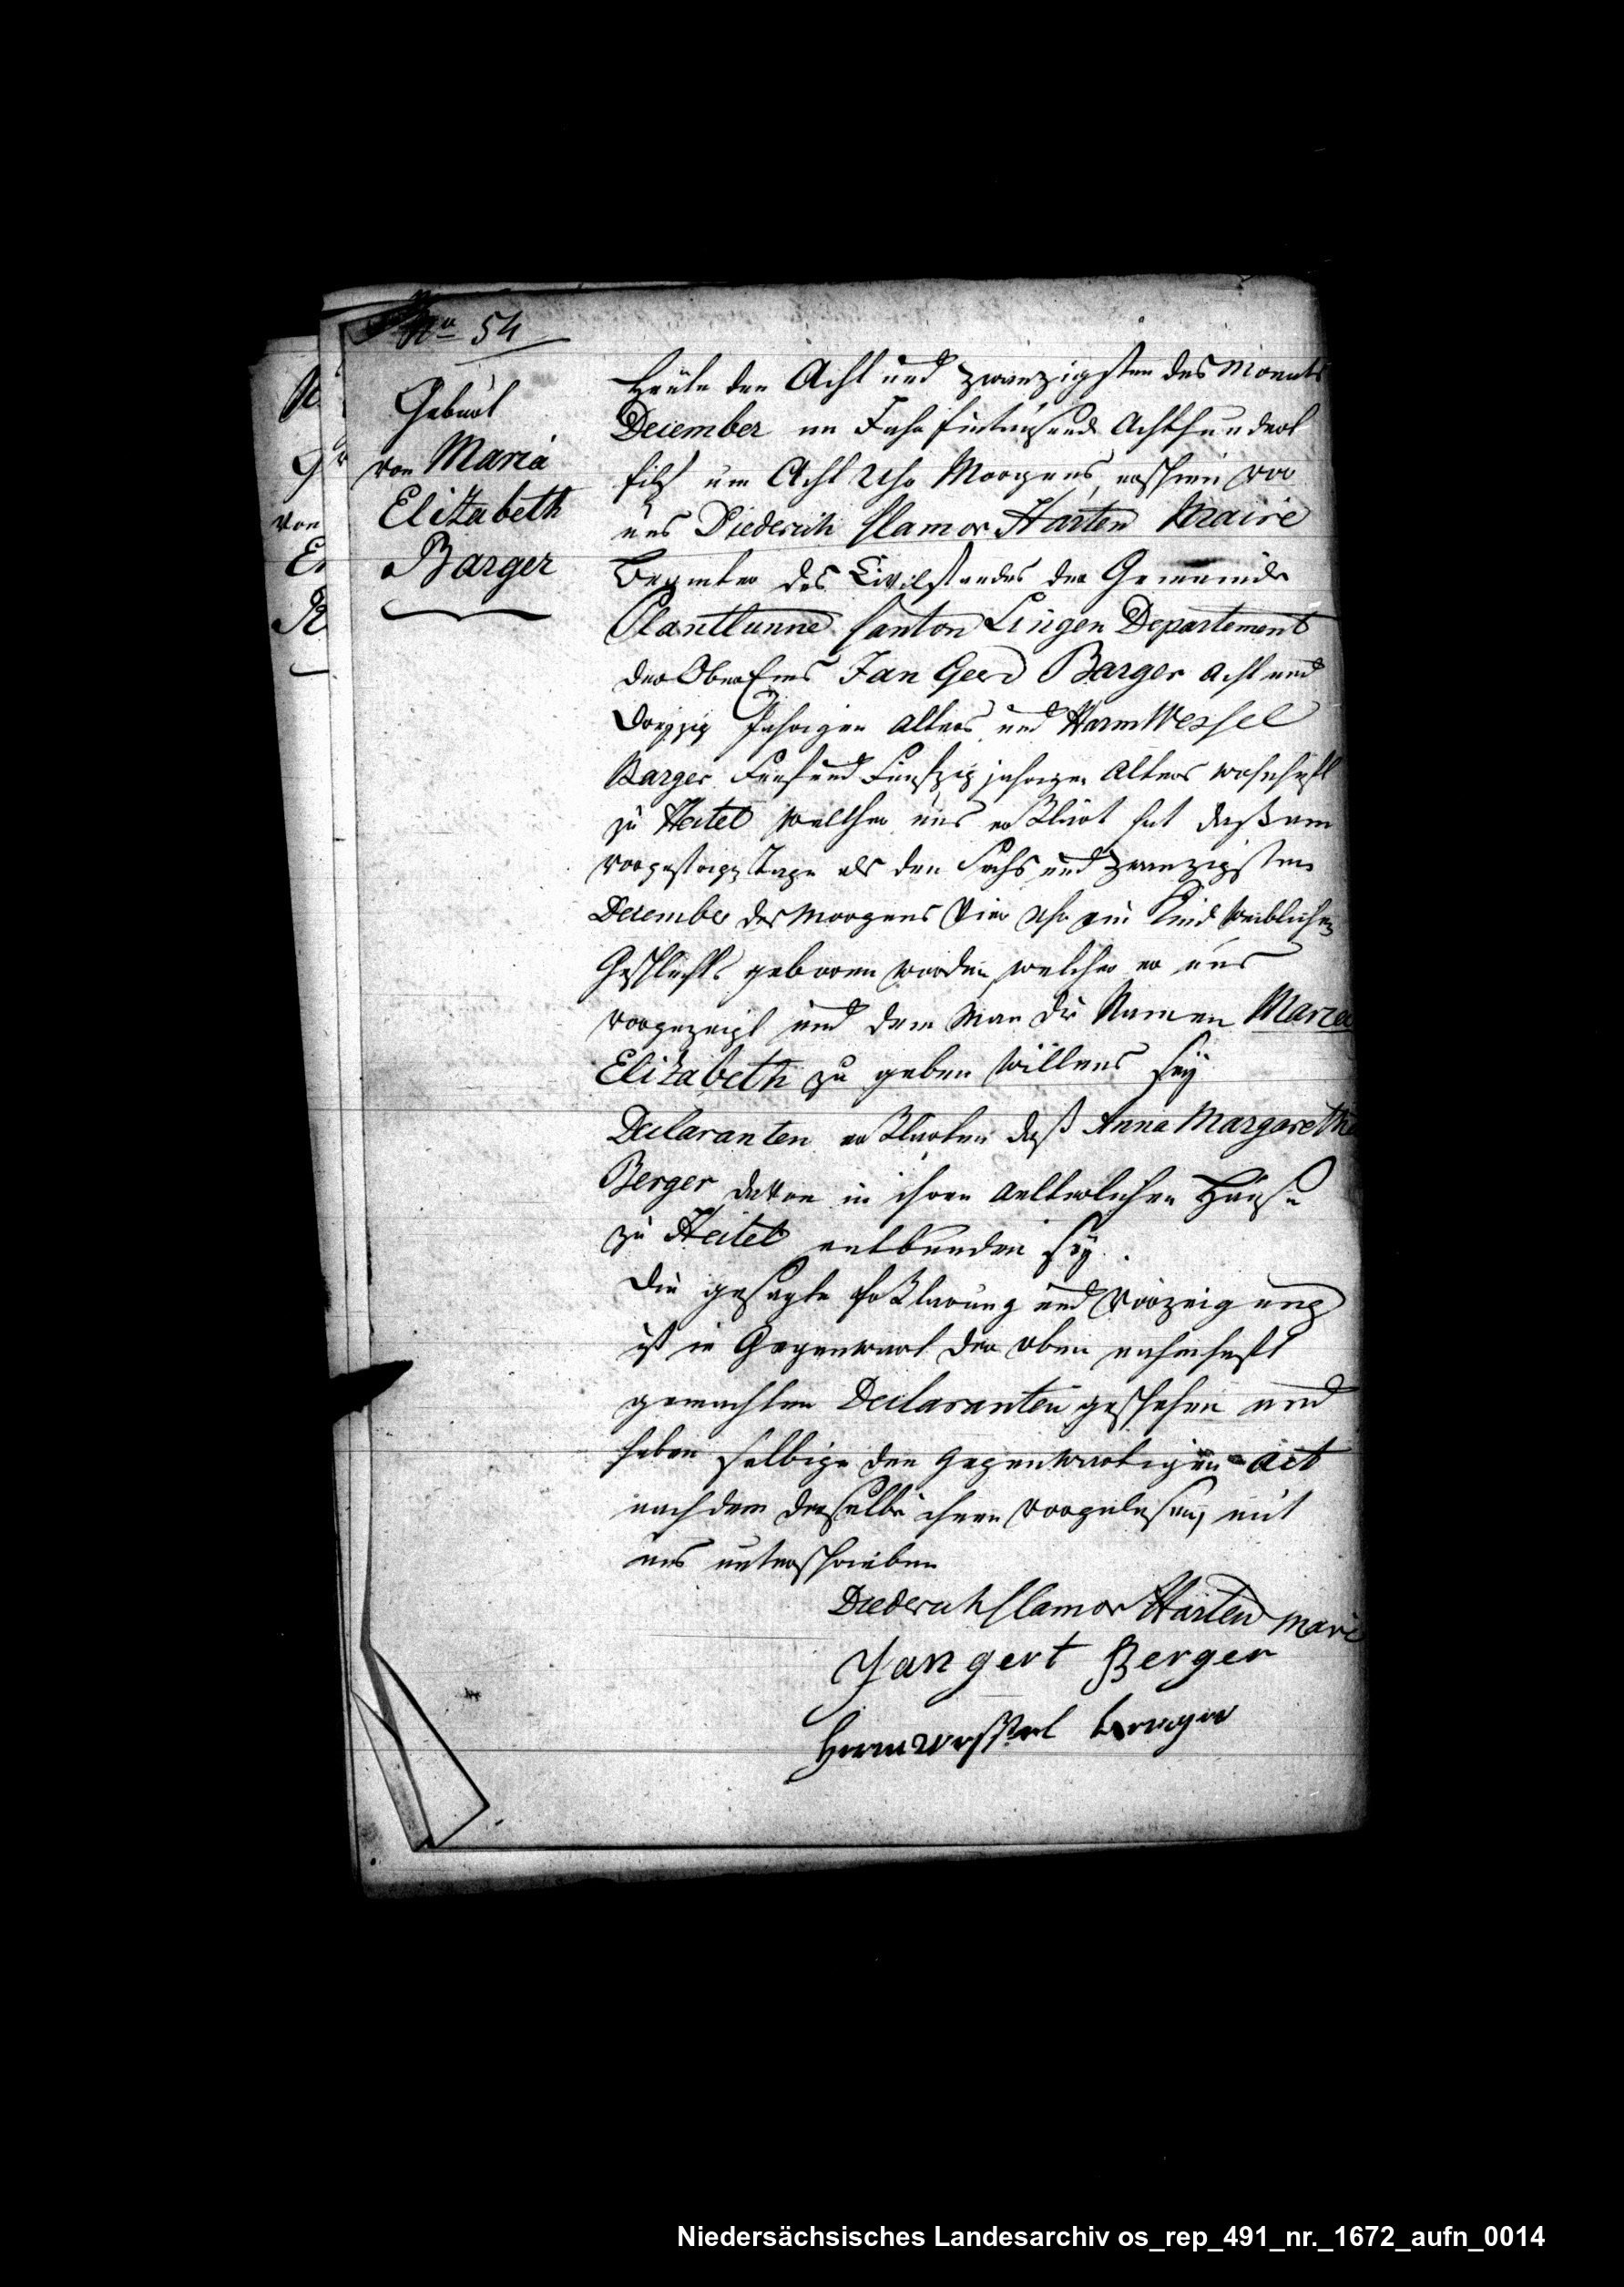 No 54
Geburt
von Maria
Elizabeth
Barger
Heute den Acht und zwanzigsten des Monats
December im Jahr Eintausend Achthundert
Eilf um Acht Uhr Morgens, erschien vor
uns Diederich Clamor Harten Maire
Beamter des Civilstandes der Gemeinde
Plantlunne Canton Lingen Departement
der Ober Ems Jan Geerd Barger acht und
Dreyzig Jahrigen Alters und Harm Wessel
Barger Funf und Funfzig jahrigen Alters wohnhaft
zu Heitel welcher uns erklärt hat daß am
vorgestrigen Tage als den Sechs und zwanzigsten
December des Morgens Vier Uhr ein Kind weiblichen
Geschlechts geboren worden, welches er uns
vorgezeigt und dem man die Namen Maria
Elizabeth zu geben willens sey
Declaranten erklarten daß Anna Margaretha
Berger davon in ihren aelterlichen Hause
zu Heitel entbunden sey.
Die gesagte Erklarung und Vorzeigung
ist in Gegenwart der oben nahmhaft
gemachten Declaranten geschehen und
haben selbige den gegenwartigen act
nach dem derselbe ihnen vorgelesen, mit
uns unterschrieben
Diederich Clamor Harten Mari
Jan gert Berger
Harm Wessel Berger
Niedersächsisches Landesarchiv os_rep_491_nr._1672_aufn_0014